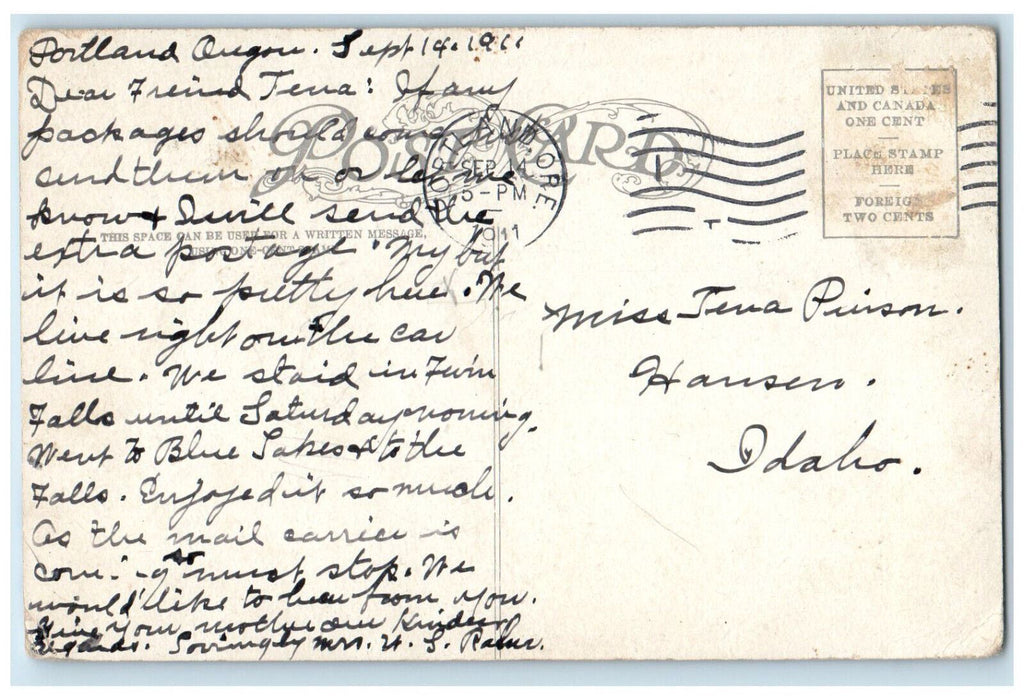 Portland Oregon. Sept 14. 1911
Dear Freind Tena: If any
packages should come just
send them on or let me
know & I will send the
extra postage. My but
it is so pretty here. We
live right on the car
line. We staid in Twin
Falls until Saturday morning.
Went to Blue Lakes & to the
Falls. Enjoyed it so much.
As the mail carrier is
coming so must stop. We
would like to hear from you.
Give your mother our kindest
regards. Lovingly Mrs. H. S.
POST CARD
THIS SPACE CAN BE USED FOR A WRITTEN MESSAGE,
USING ONE-CENT STAMP
PORTLAND, ORE.
SEP 14
5-PM
1911
UNITED STATES
AND CANADA
ONE CENT
PLACE STAMP
HERE
FOREIGN
TWO CENTS
Miss Tena Pinson.
Hansen.
Idaho.